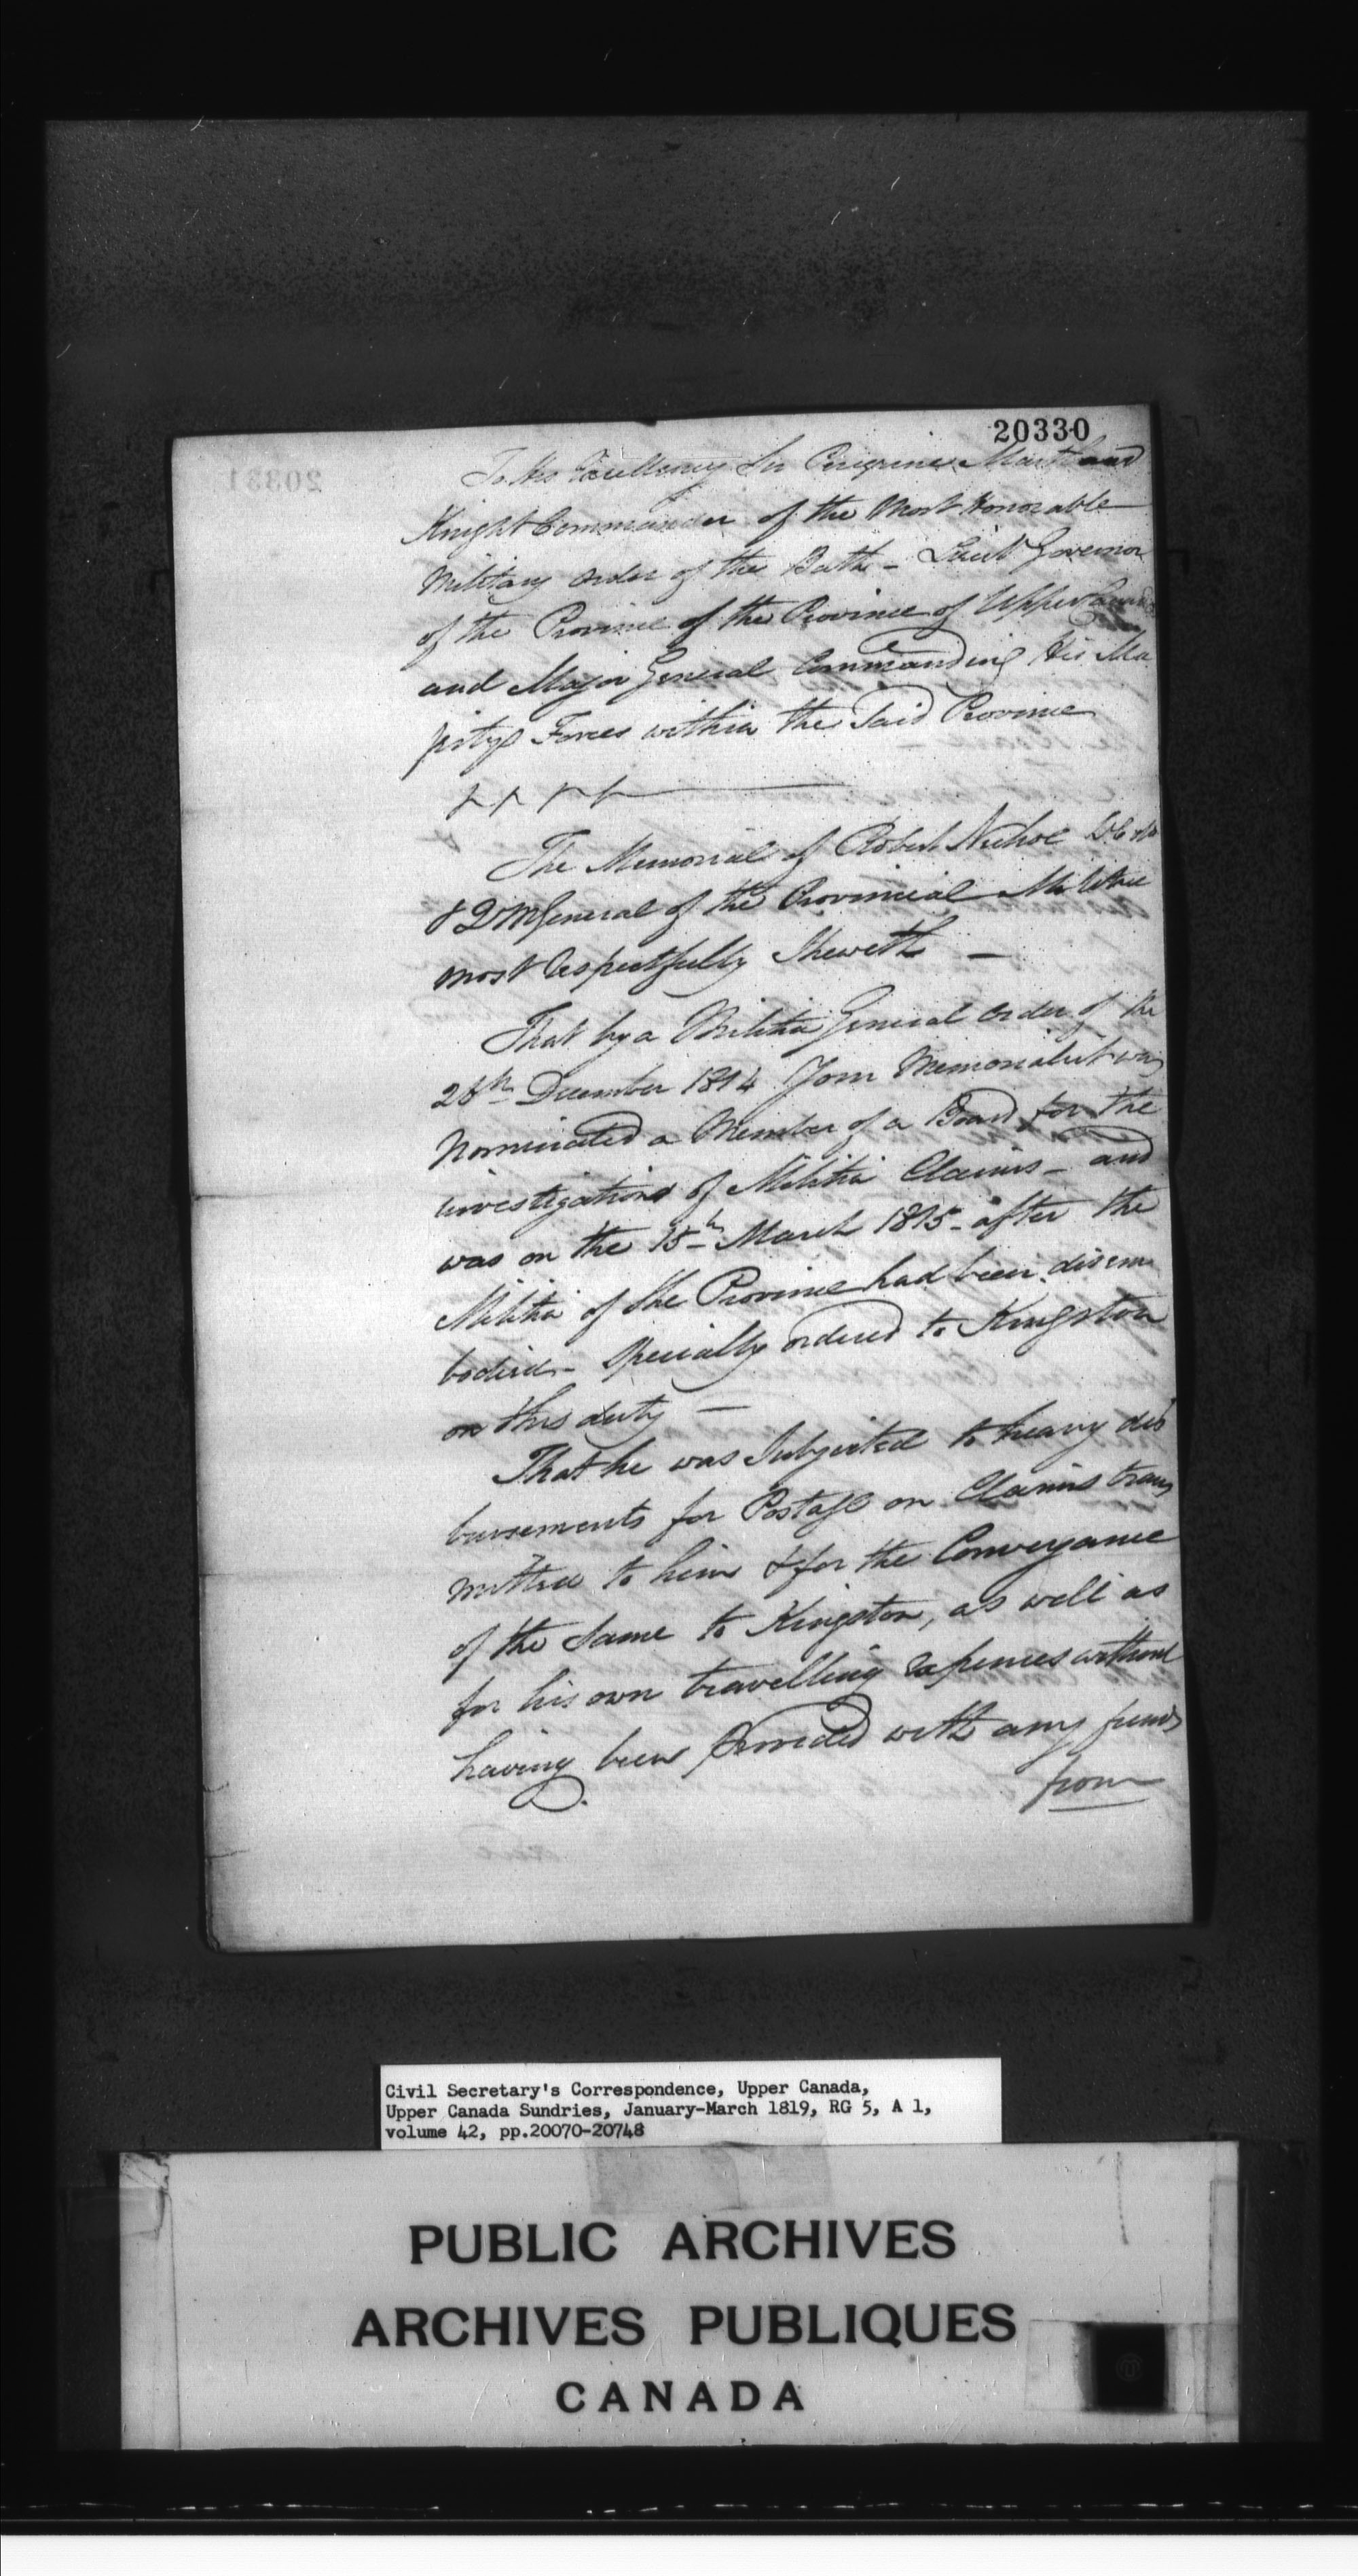 20330
To His Excellency Sir Peregrine Maitland
Knight Commander of the Most Honorable
Military Order of the Bath - Lieut Governor
of the Province of the Province of Upper Canada
and Major General Commanding His Ma
jestys Forces within the Said Province
The Memorial of Robert Nichol
& QMGeneral of the Provincial Militia
most respectfully Sheweth -
That by a Militia General Order of the
26th December 1814 Your Memorialist was
Nominated a Member of a Board for the
investigations of Militia Claims - and
was on the 15th March 1815 - after the
Militia of the Province had been disem
bodied - Specially ordered to Kingston
on this duty -
That he was Subjected to heavy dis
bursements for Postage on Claims trans
mitted to him & for the Conveyance
of the Same to Kingston, as well as
for his own travelling expenses without
having been provided with any funds
from
Civil Secretary's Correspondence, Upper Canada,
Upper Canada Sundries, January-March 1819, RG 5, A 1,
volume 42, pp.20070-20748
PUBLIC ARCHIVES
ARCHIVES PUBLIQUES
CANADA